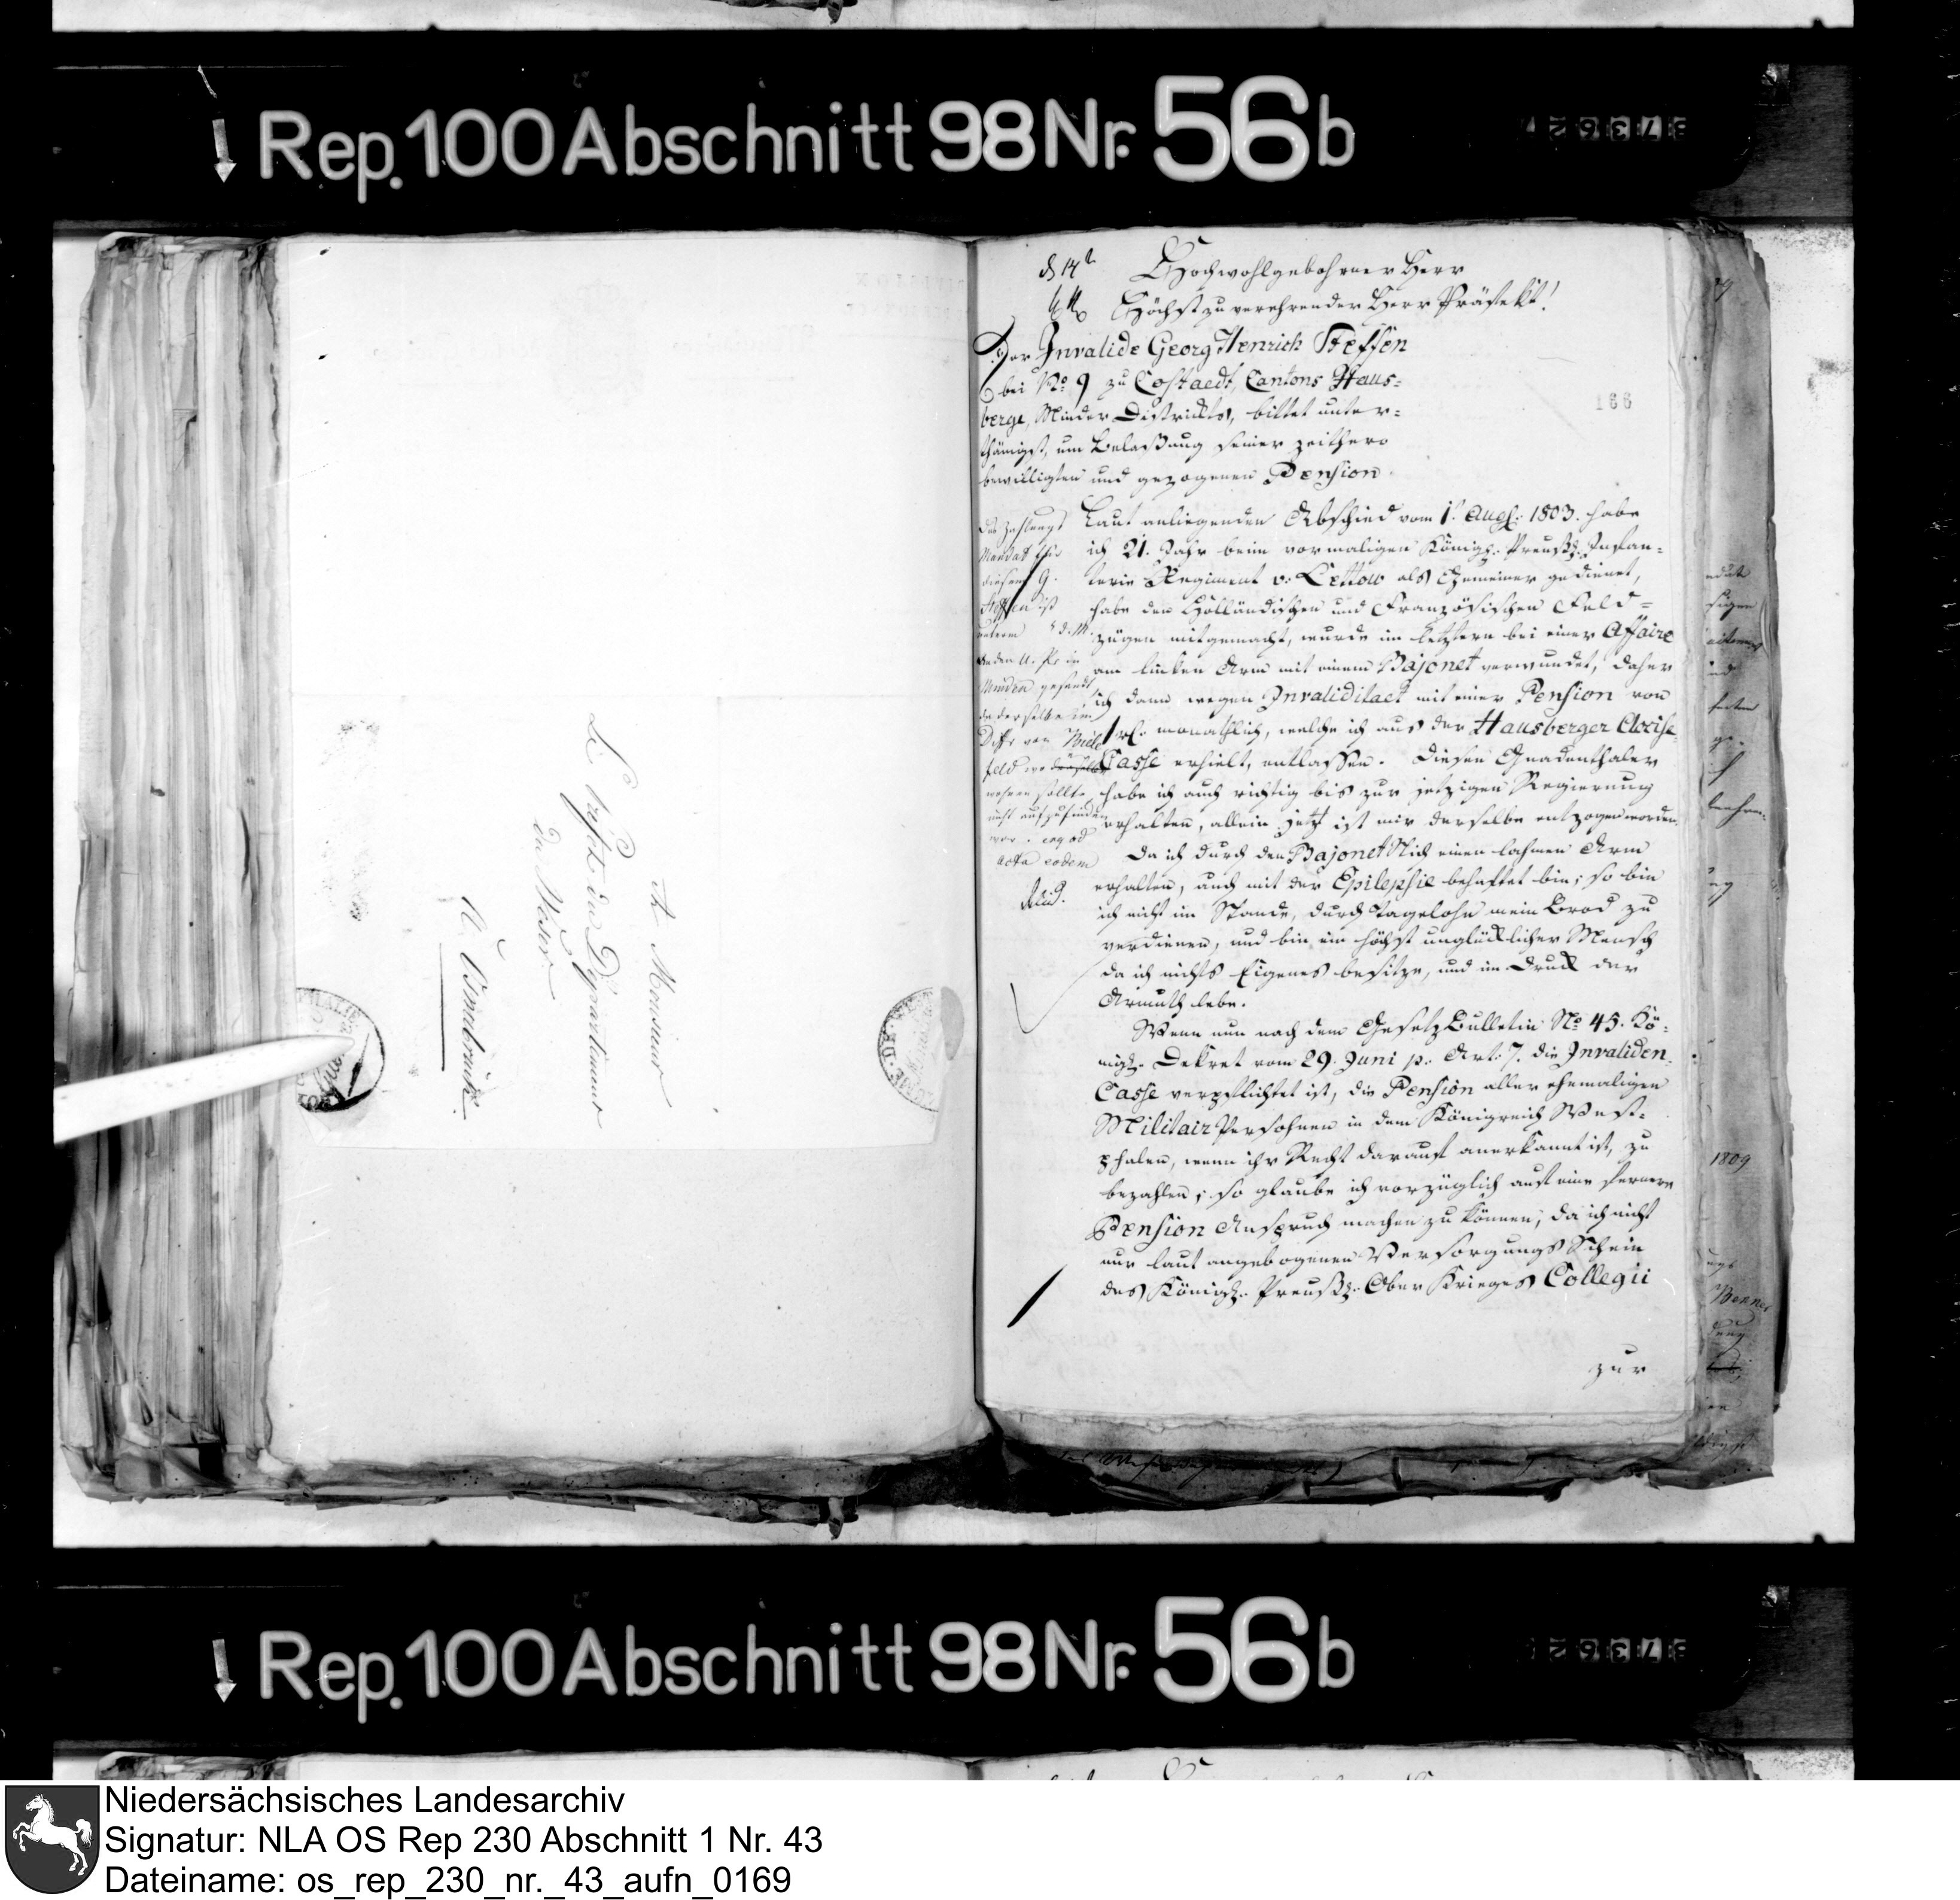 Rep. 100 Abschnitt 98 Nr. 56 b
A Monsieur
Le Préfet du Département
du Weser
à Osnabruck.
166
Hochwohlgebohrner Herr
Höchstzuverehrender Herr Präfekt!
Der Invalide Georg Henrich Steffen
bei No 9 zu Costaedt, Cantons Haus-
berge, Minder Districkts, bittet unter-
thänigst, um Belaßung seiner zeithero
bewilligten und gezogenen Pension
Laut anliegenden Abschied vom 1t Aug. 1803. habe
ich 21. Jahr beim vormaligen Königl. Preußl. Infan-
terie Regiment v. Lettow als Gemeiner gedienet,
habe den Holländischen und Französischen Feld-
zügen mitgemacht, wurde im letztern bei einer Affaire
am linken Arm mit einem Bajonet verwundet, daher
ich dann wegen Invaliditaet mit einer Pension von
1 rl. monathlich, welche ich aus der Hausberger Accise
Casse erhielt, entlassen. Diesen Gnadenthaler
habe ich auch richtig bis zur jetzigen Regierung
erhalten, allein jetzt ist mir derselbe entzogen worden.
Da ich durch den Bajonetstich einen lahmen Arm
erhalten, auch mit der Epilepsie behaftet bin; so bin
ich nicht im Stande, durch Tagelohn mein Brod zu
verdienen, und bin ein höchst unglücklicher Mensch
da ich nichts Eigenes besitze, und im Druck der
Armuth lebe.
Wenn nun nach dem Gesetz Bulletin No 45. Kö-
nigl. Dekret vom 29. Juni p. Art. 7. die Invaliden-
Casse verpflichtet ist, die Pension aller ehemaligen
Militair Persohnen in dem Königreich West-
phalen, wenn ihr Recht darauf anerkannt ist, zu
bezahlen; so glaube ich vorzüglich auf eine fernere
Pension Anspruch machen zu können, da ich nicht
nur laut angebogenen Versorgungs Schein
des Königl. Preußl. Ober Krieges Collegii
zur
das Zahlungs
Mandat für
diesen G.
Steffen ist
unterm d. M.
an den U. Pr. in
Minden gesandt,
da derselbe im
Distr. von Biele
feld wo derselbe
wohnen sollte
nicht aufzufinden
war.
acta eodem
1809
Rep. 100 Abschnitt 98 Nr. 56 b
Niedersächsisches Landesarchiv
Signatur: NLA OS Rep 230 Abschnitt 1 Nr. 43
Dateiname: os_rep_230_nr._43_aufn_0169